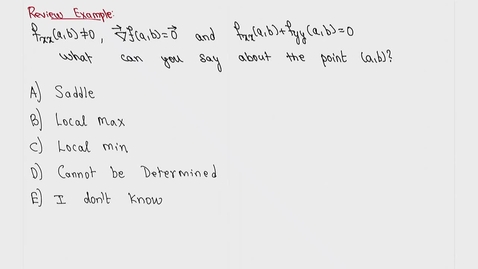 Review Example:
f_xx(a,b)≠0, ∇⃗f(a,b)=0⃗ and f_xx(a,b)+f_yy(a,b)=0
What can you say about the point (a,b)?
A) Saddle
B) Local Max
C) Local Min
D) Cannot be Determined
E) I don't know